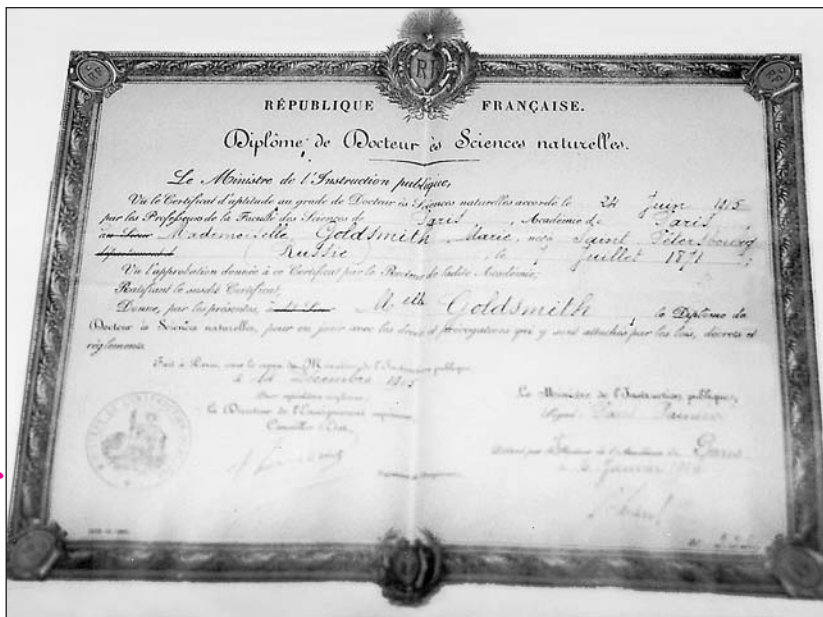 RF
RÉPUBLIQUE FRANÇAISE.
Diplôme de Docteur ès Sciences naturelles.
Le Ministre de l'Instruction publique,
Vu le Certificat d'aptitude au grade de Docteur ès Sciences naturelles accordé le 24 Juin 1915
par les Professeurs de la Faculté des Sciences de Paris, Académie de Paris,
à Mademoiselle Goldsmith, Marie, née à Saint Pétersbourg
département (Russie) le 7 Juillet 1871;
Vu l'approbation donnée à ce Certificat par le Recteur de ladite Académie;
Ratifiant le susdit Certificat,
Donne, par les présentes, à Melle Goldsmith le Diplôme de
Docteur ès Sciences naturelles, pour en jouir avec les droits et prérogatives qui y sont attachés par les lois, décrets et
règlements.
Fait à Paris, sous le sceau du Ministère de l'Instruction publique,
le Décembre 1915
Le Directeur de l'Enseignement supérieur,
Conseiller d'État,
Le Ministre de l'Instruction publique,
Signé: Paul Painlevé
Délivré par le Recteur de l'Académie de Paris
le Janvier